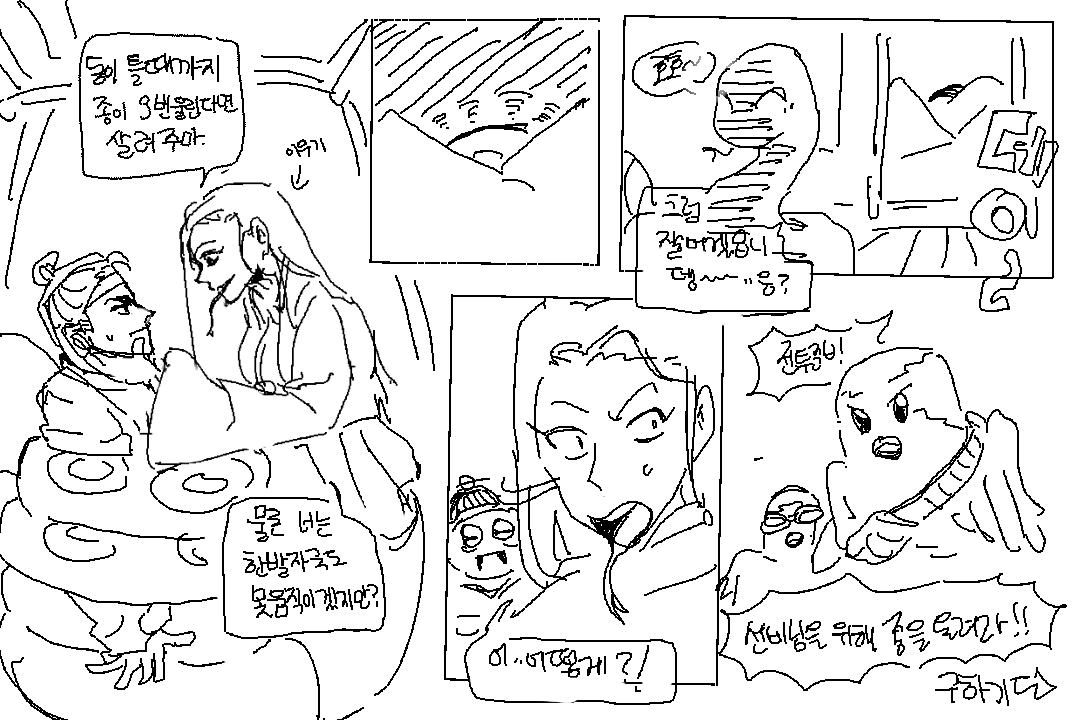 동이 틀때까지
종이 3번울린다면
살려주마.
이무기
물론 너는
한발자국도
못움직이겠지만?
호호~
그럼
잘먹겠읍니
뎅~~··응?
데
엥
?
이··어떻게?!
전투준비!
선비님을 위해 종을 울려라!!
구하기단